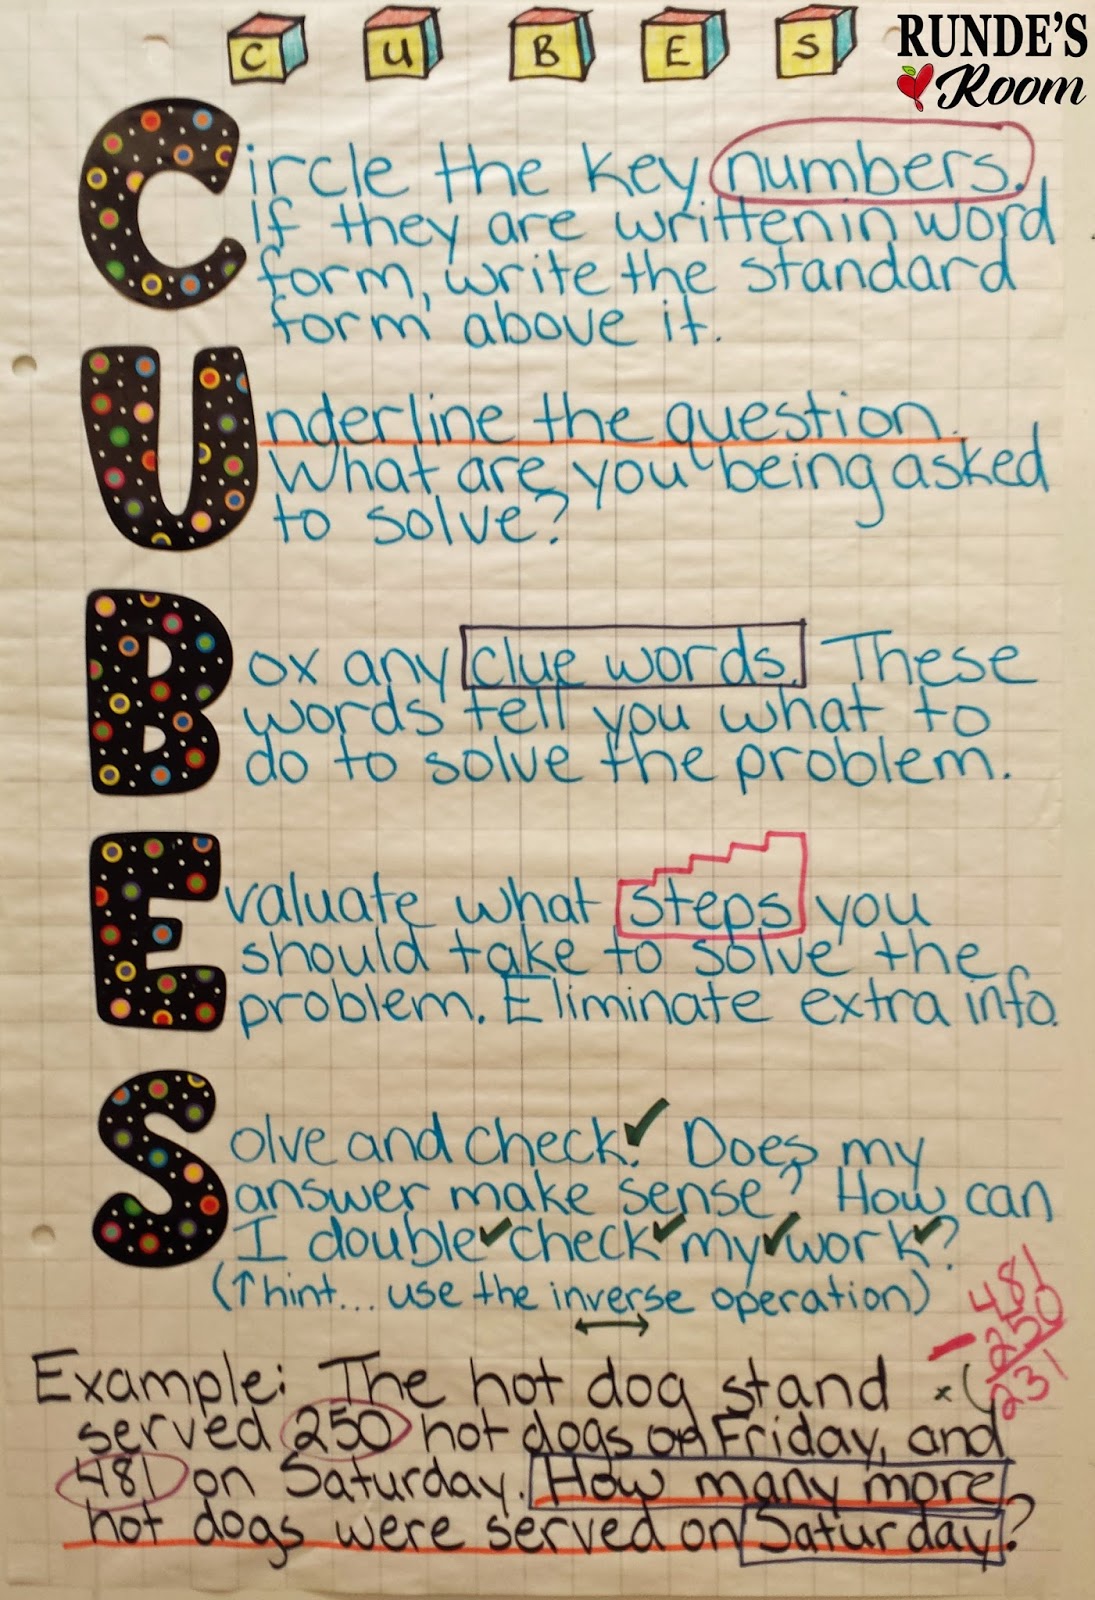 C U B E S
RUNDE'S
Room
Circle the key numbers.
If they are written in word
form, write the standard
form above it.
Underline the question.
What are you being asked
to solve?
Box any clue words. These
words tell you what to
do to solve the problem.
Evaluate what steps you
should take to solve the
problem. Eliminate extra info.
Solve and check. Does my
answer make sense? How can
I double check my work?
(↑hint... use the inverse operation)
481
- 250
231
Example: The hot dog stand
served 250 hot dogs on Friday, and
481 on Saturday. How many more
hot dogs were served on Saturday?